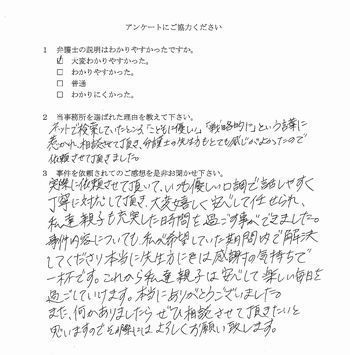 アンケートにご協力ください
1 弁護士の説明はわかりやすかったですか。
☑ 大変わかりやすかった。
□ わかりやすかった。
□ 普通
□ わかりにくかった。
2 当事務所を選ばれた理由を教えて下さい。
ネットで検索していたところ、「こどもに優しい」「戦略的に」という言葉に
惹かれ、相談させて頂き、弁護士の先生方もとても感じがよかったので
依頼させて頂きました。
3 事件を依頼されてのご感想を是非お聞かせ下さい。
実際に依頼させて頂いて、いつも優しい口調で話しやすく
丁寧に対応して頂き、大変嬉しく安心して任せられ、
私達親子も充実した時間を過ごす事ができました。
事件内容についても、私が希望していた期間内で解決
してくださり本当に先生方には感謝の気持ちで
一杯です。これから私達親子は安心して楽しい毎日を
過ごしていけます。本当にありがとうございました。
また、何かありましたらぜひ相談させて頂きたいと
思いますのでその際にはよろしくお願い致します。